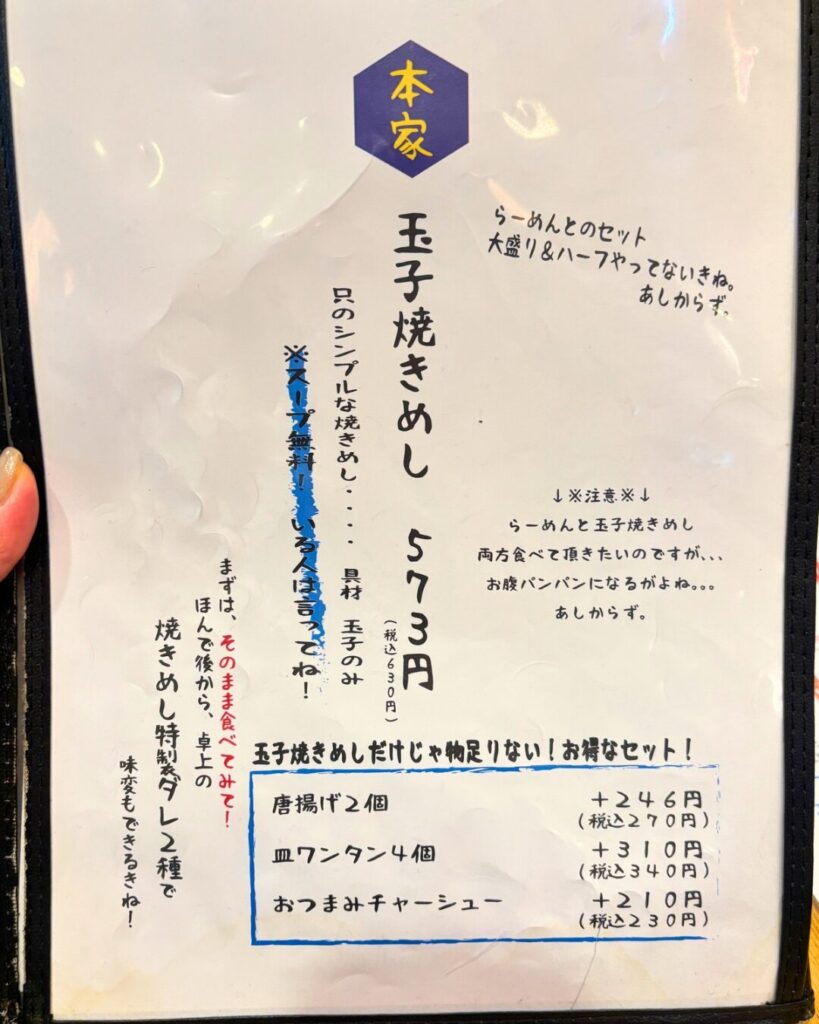 本家
らーめんとのセット
大盛り&ハーフやってないきね。
あしからず。
玉子焼きめし 573円
(税込630円)
只のシンプルな焼きめし・・・・ 具材 玉子のみ
※スープ無料! いる人は言ってね!
↓※注意※↓
らーめんと玉子焼きめし
両方食べて頂きたいのですが、、、
お腹パンパンになるがよね。。。
あしからず。
まずは、そのまま食べてみて!
ほんで後から、卓上の
焼きめし特製ダレ2種で
味変もできるきね!
玉子焼きめしだけじゃ物足りない!お得なセット!
唐揚げ2個 +246円
(税込270円)
皿ワンタン4個 +310円
(税込340円)
おつまみチャーシュー +210円
(税込230円)